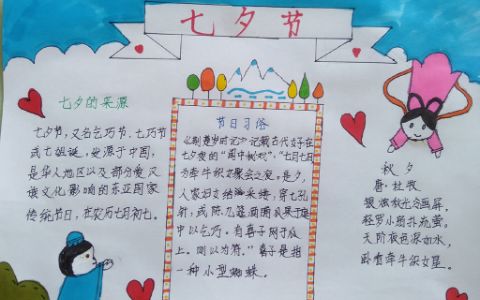 七夕节
七夕的来源
七夕节，又名乞巧节、七巧节
或七姐诞，发源于中国，
是华人地区以及部分受汉
族文化影响的东亚国家
传统节日，在农历七月初七。
节日习俗
《荆楚岁时记》记载古代女子在
七夕夜的"闺中秘戏"，"七月七日
为牵牛织女聚会之夜，是夕，
人家妇女结彩缕，穿七孔
针，或陈几筵酒脯瓜果于庭
中以乞巧。有喜子网于瓜
上。则以为符。"喜子是指
一种小型蜘蛛。
秋夕
唐·杜牧
银烛秋光冷画屏，
轻罗小扇扑流萤，
天阶夜色凉如水，
卧看牵牛织女星。